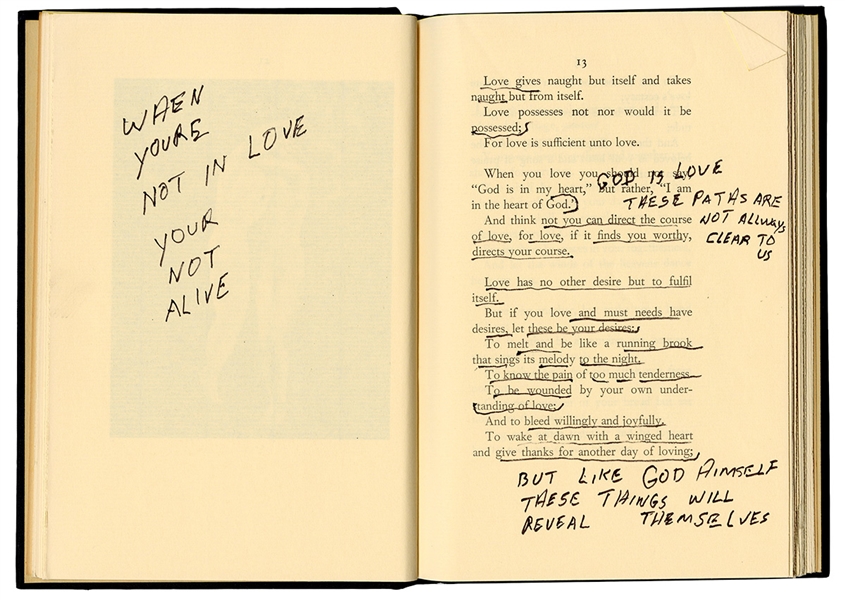 WHEN
YOURE
NOT IN LOVE
YOUR
NOT
ALIVE
13
Love gives naught but itself and takes
naught but from itself.
Love possesses not nor would it be
possessed;
For love is sufficient unto love.
When you love you should not say,
"God is in my heart," but rather, "I am
in the heart of God."
GOD IS LOVE
THESE PATHS ARE
NOT ALLWAYS
CLEAR TO
US
And think not you can direct the course
of love, for love, if it finds you worthy,
directs your course.
Love has no other desire but to fulfil
itself.
But if you love and must needs have
desires, let these be your desires:
To melt and be like a running brook
that sings its melody to the night.
To know the pain of too much tenderness.
To be wounded by your own under-
standing of love;
And to bleed willingly and joyfully.
To wake at dawn with a winged heart
and give thanks for another day of loving;
BUT LIKE GOD HIMSELF
THESE THINGS WILL
REVEAL THEMSELVES